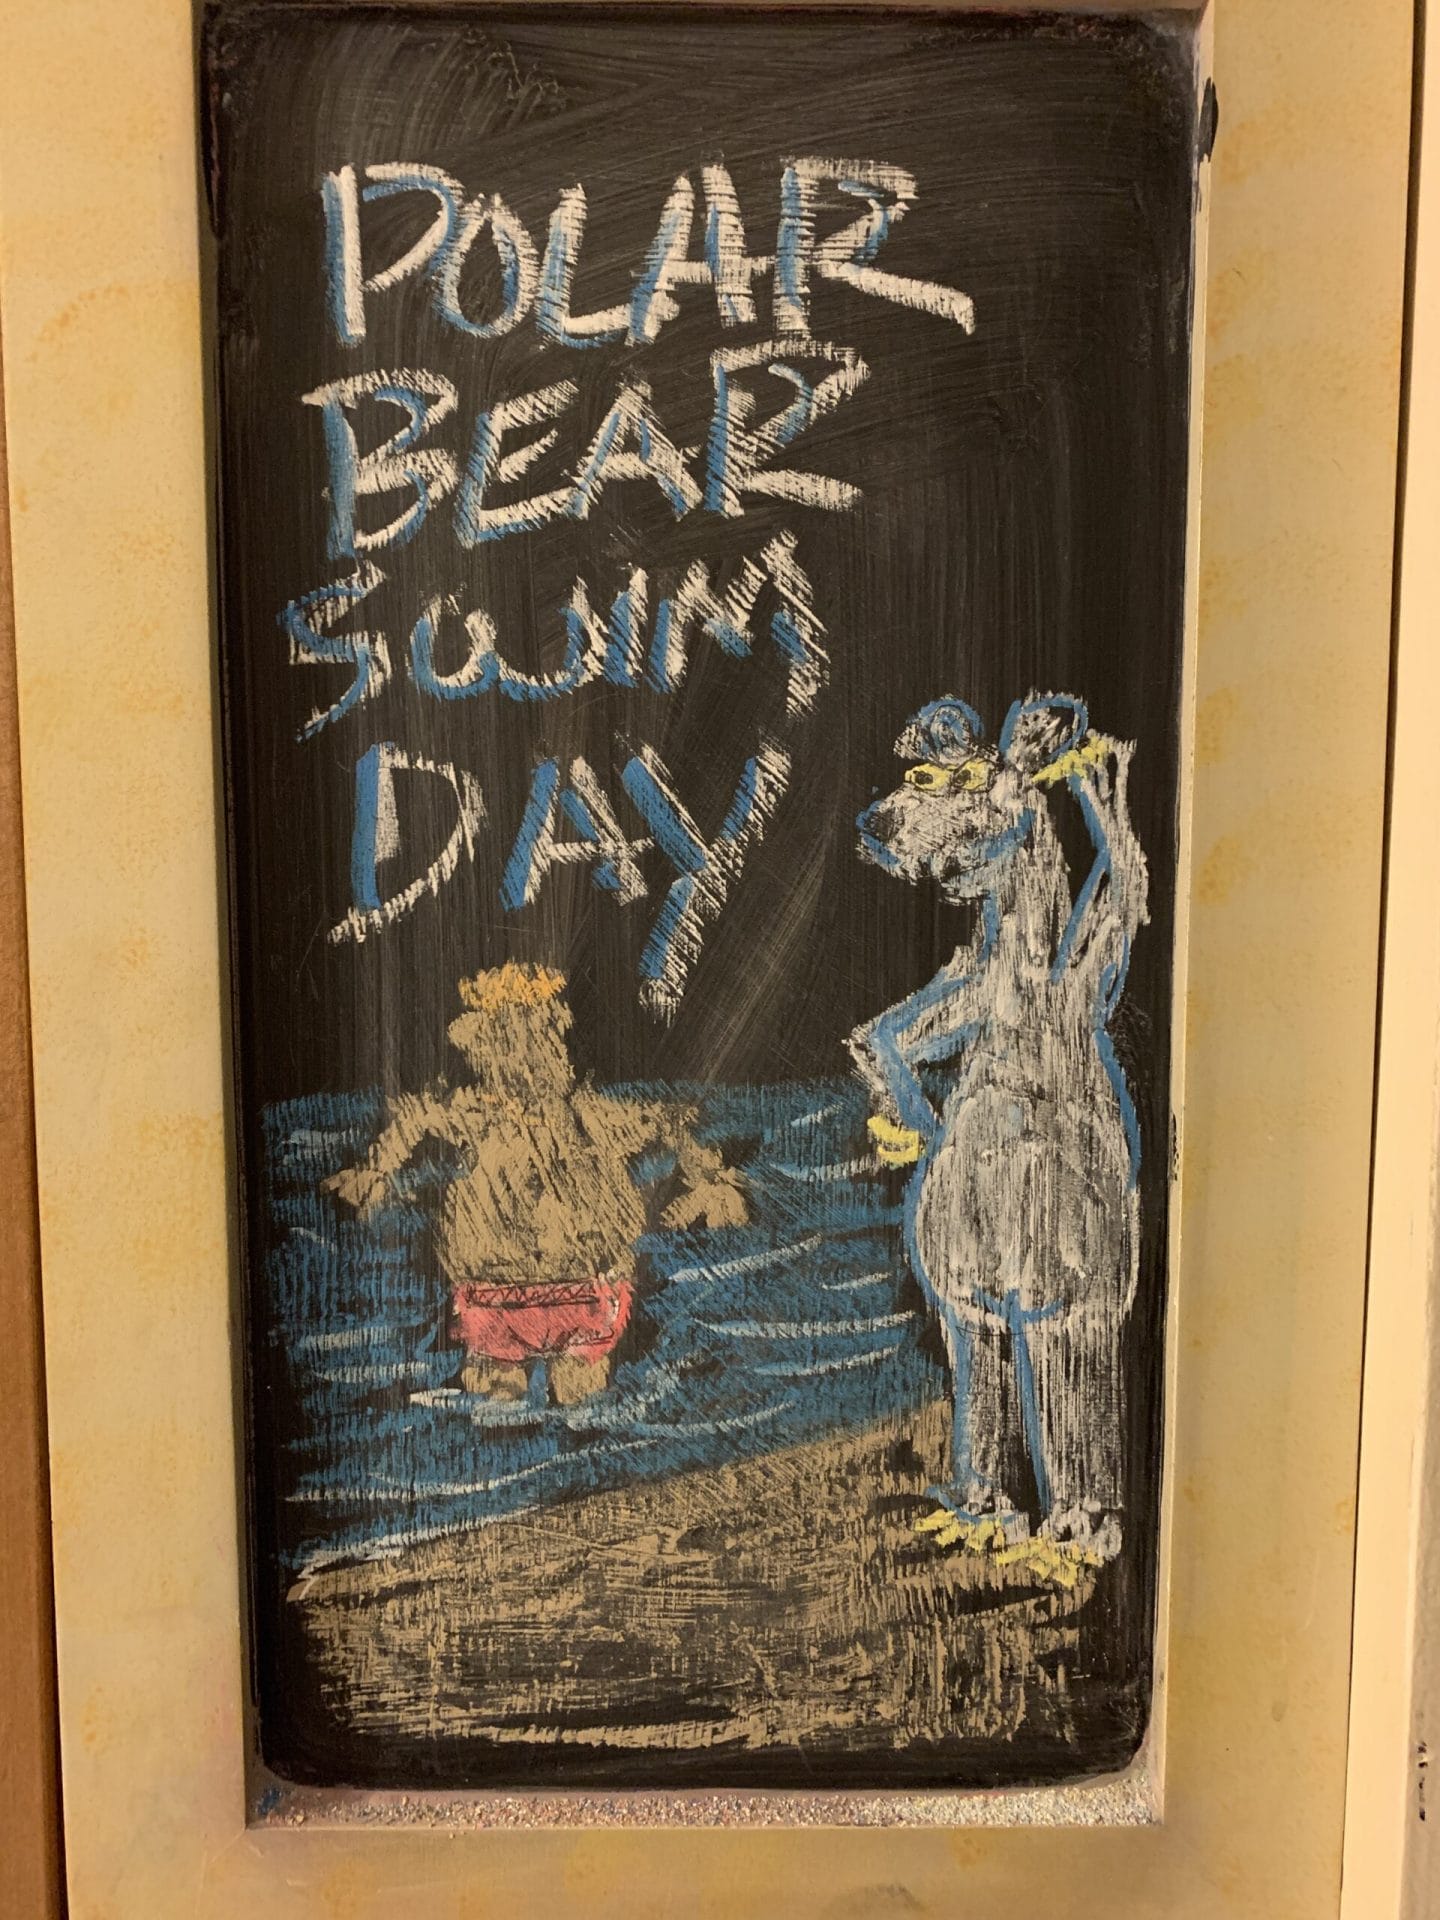 POLAR
BEAR
SWIM
DAY